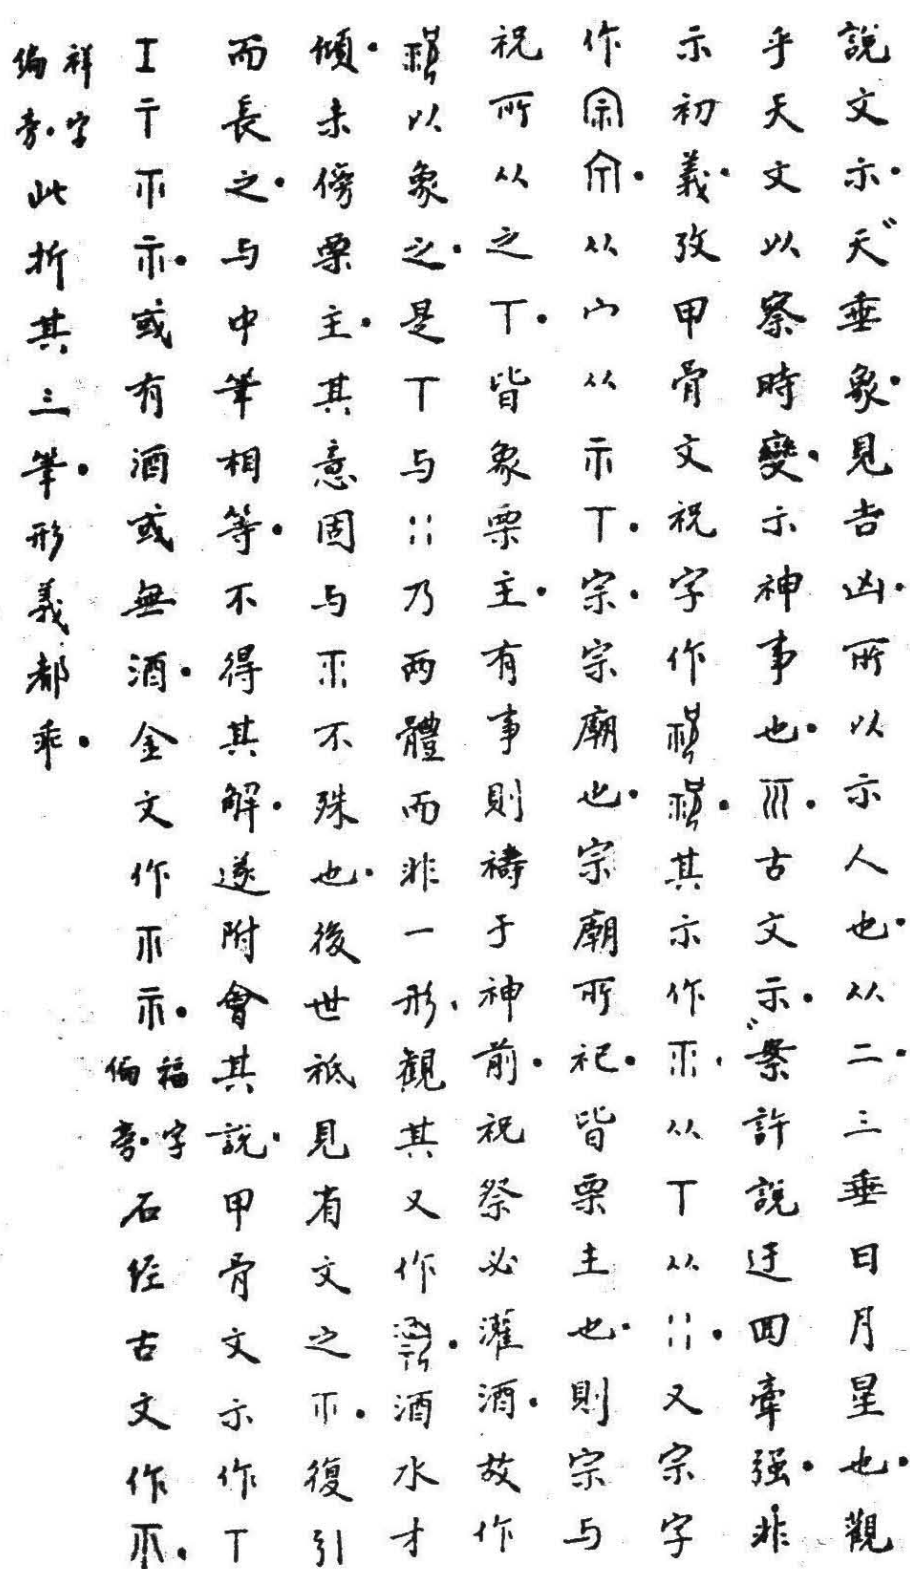 說文示天垂象見吉凶所以示人也从二三垂日月星也觀
乎天文以察時變示神事也古文示案許說迂回牽强非
示初義攷甲骨文祝字作其示作从丅从又宗字
作从宀从示丅宗宗廟也宗廟所祀皆栗主也則宗与
祝所从之丅皆象栗主有事則禱于神前祝祭必灌酒故作
以象之是丅与乃兩體而非一形觀其又作酒水才
傾未傍栗主其意固与不殊也後世祗見省文之復引
而長之与中筆相等不得其解遂附會其說甲骨文示作丅
示或有酒或無酒金文作示福字偏旁石經古文作
祥字偏旁此折其三筆形義都乖